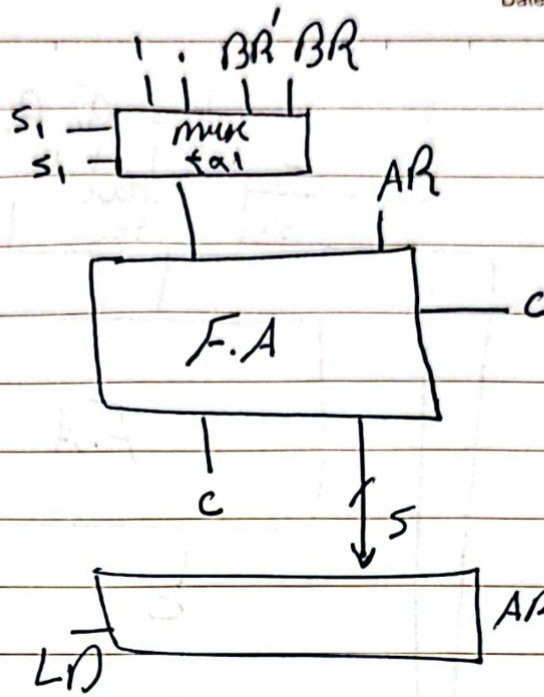 Date
1 . BR' BR
S₁ mux
S₁ 4x1
AR
F.A C
C
S
AR
LD